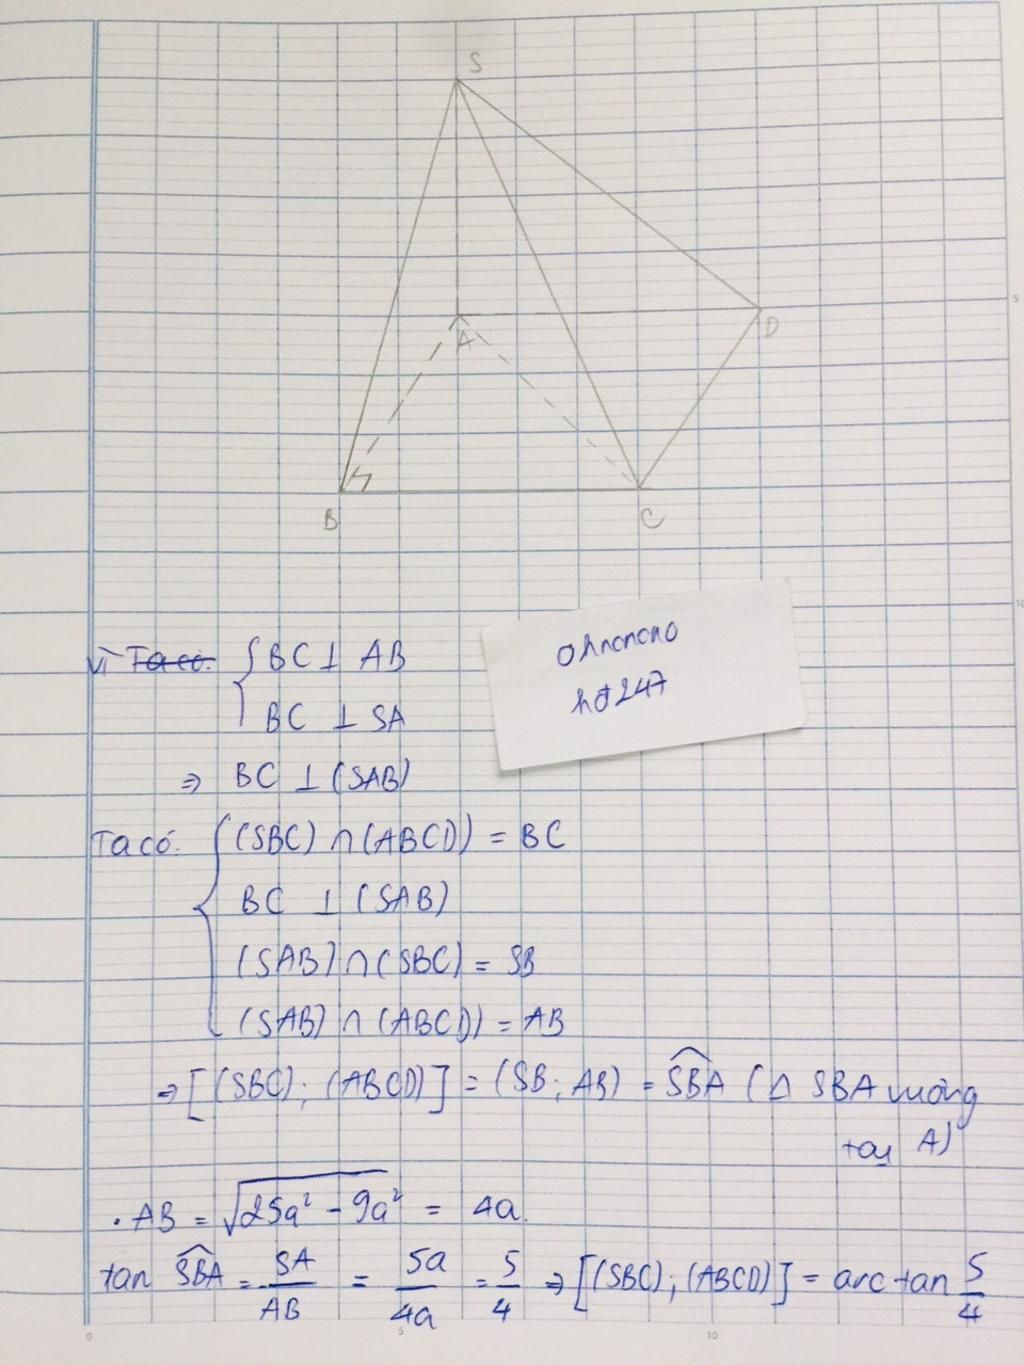 S
A
D
B
C
Vì Ta có: { BC ⊥ AB
BC ⊥ SA
⇒ BC ⊥ (SAB)
Ohncncno
hđ247
Ta có: { (SBC) ∩ (ABCD) = BC
BC ⊥ (SAB)
(SAB) ∩ (SBC) = SB
(SAB) ∩ (ABCD) = AB
⇒ [(SBC); (ABCD)] = (SB; AB) = \widehat{SBA} (Δ SBA vuông
tại A)
. AB = √(25a² - 9a²) = 4a.
tan \widehat{SBA} = SA/AB = 5a/4a = 5/4 ⇒ [(SBC); (ABCD)] = arc tan 5/4
5
10
0
5
10